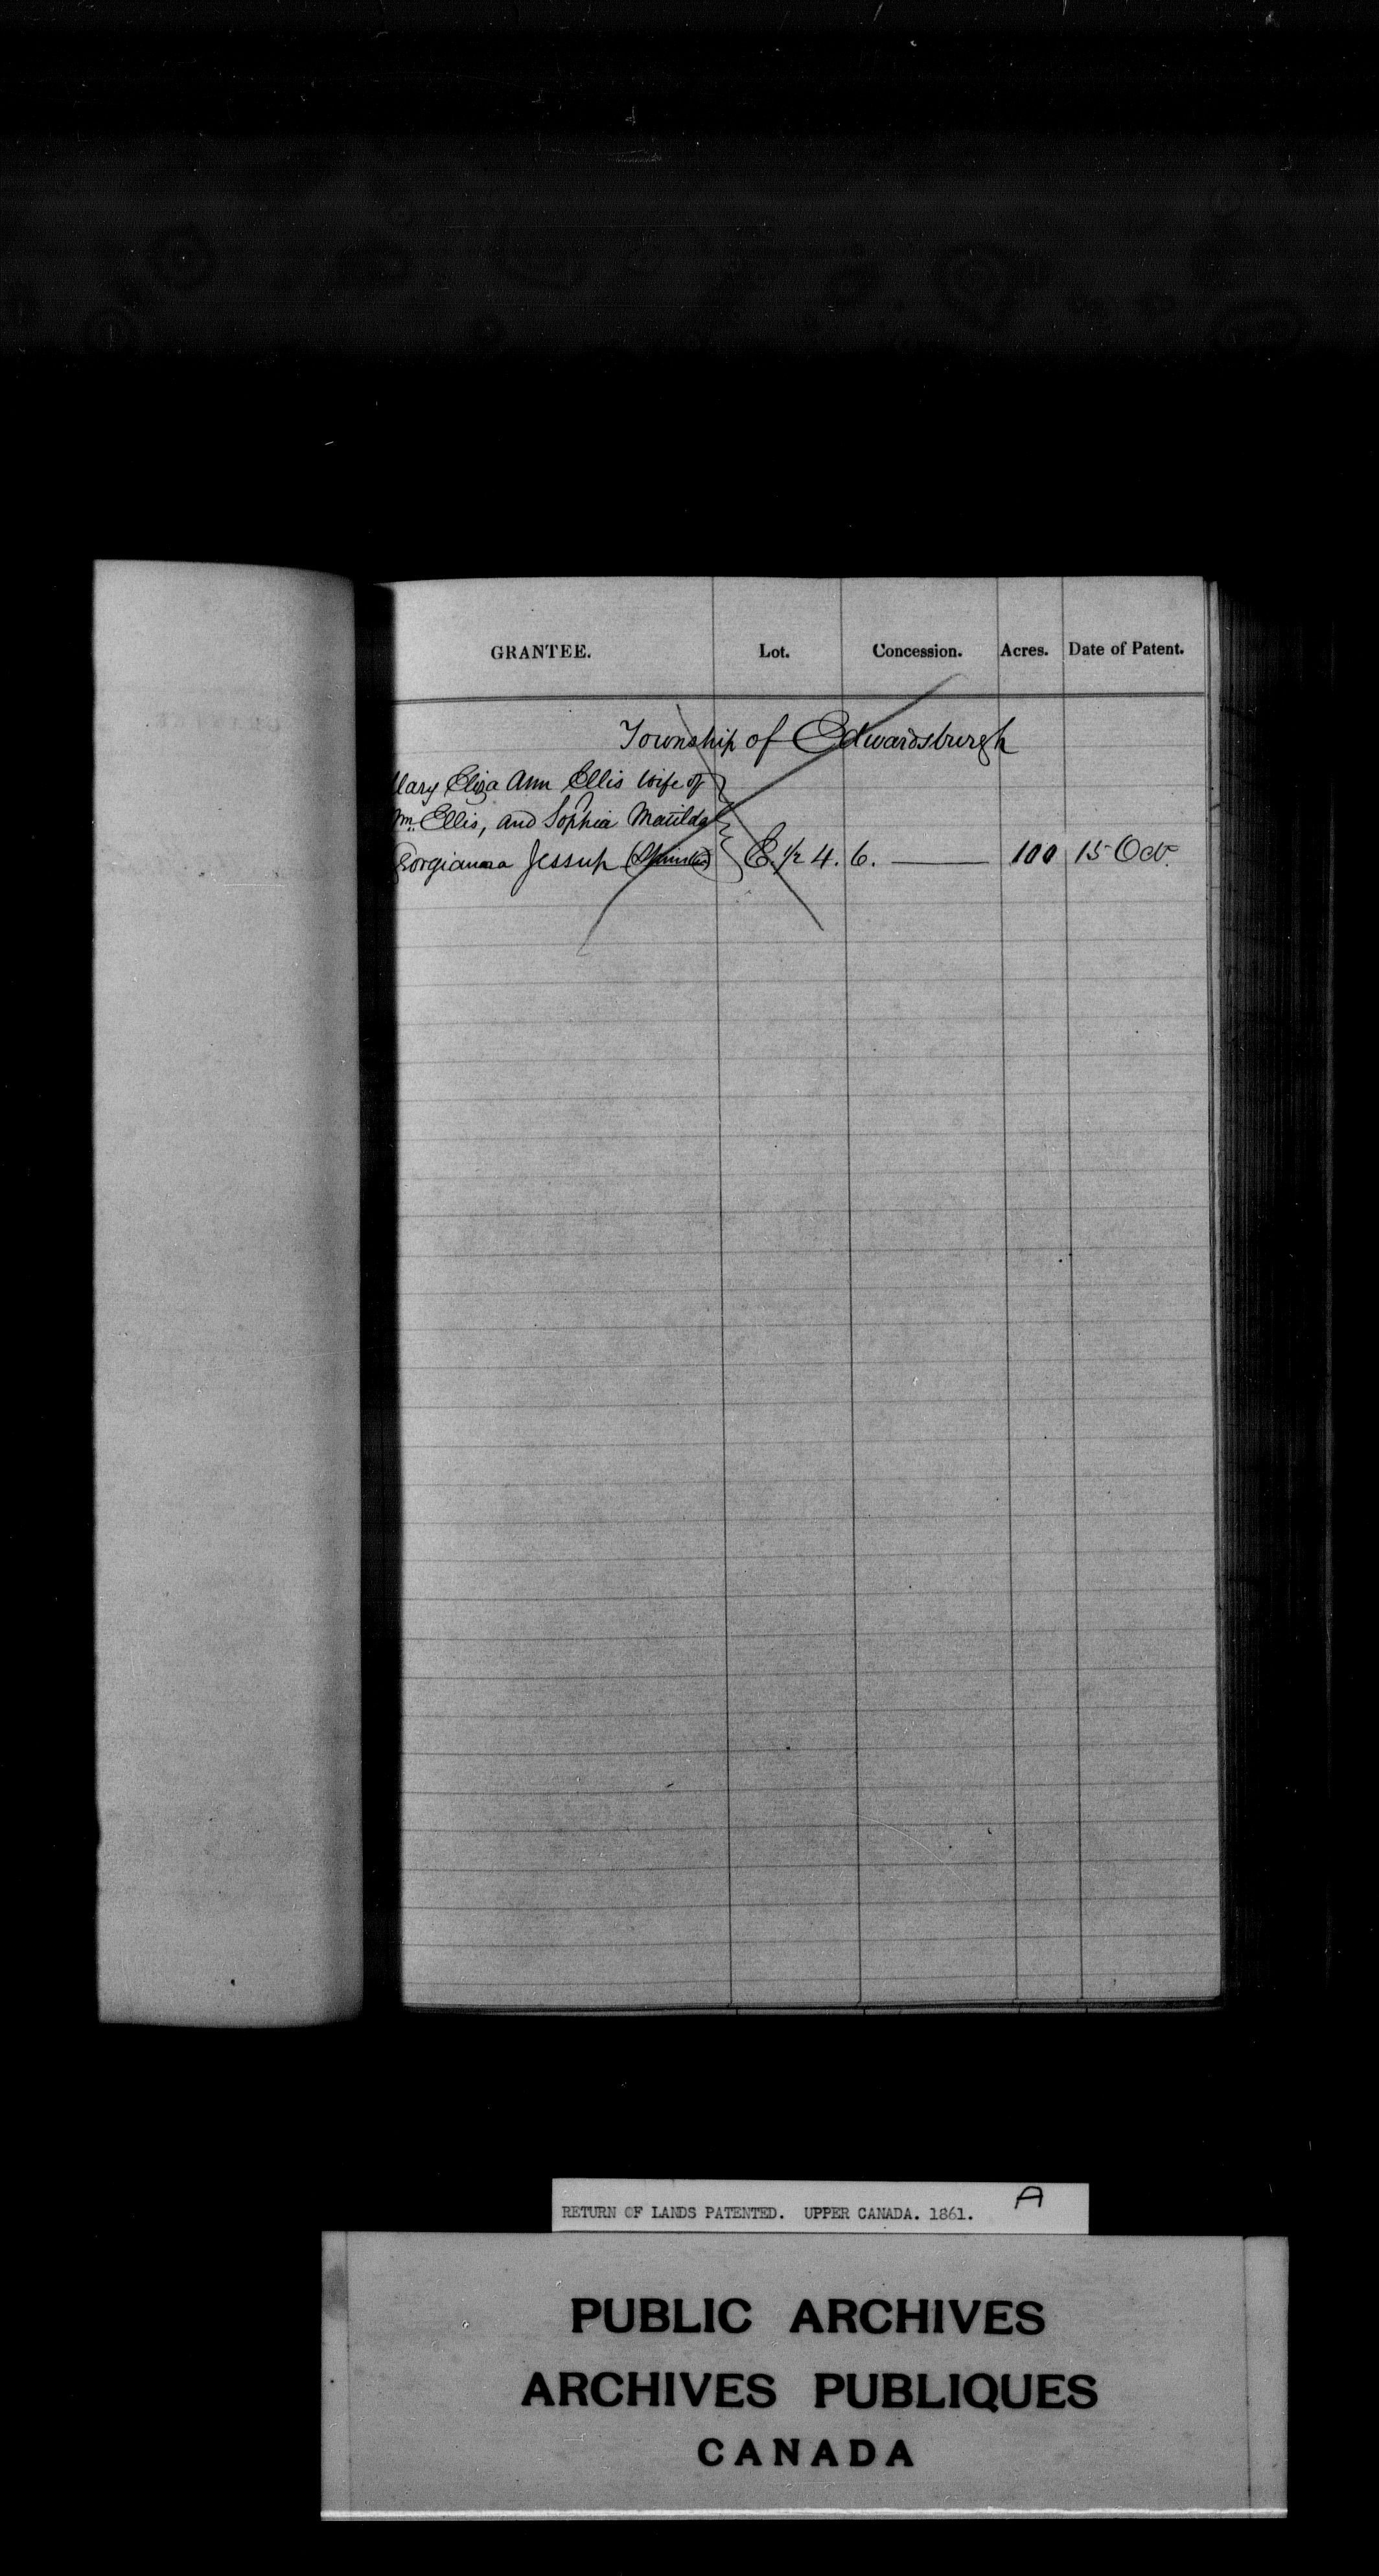 GRANTEE. Lot. Concession. Acres. Date of Patent.
Township of Edwardsburgh
Mary Eliza Ann Ellis wife of
Wm. Ellis, and Sophia Matilda
Georgianna Jessup (Spinster) E. 1/2 4. 6. — 100 15 Oct.
RETURN OF LANDS PATENTED. UPPER CANADA. 1861. A
PUBLIC ARCHIVES
ARCHIVES PUBLIQUES
CANADA